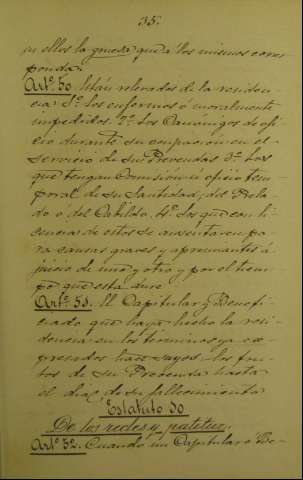 35.
en ellos la gruesa que á los mismos corres-
ponda.
Artº. 50. Están relevados de la residen-
cia 1º. Los enfermos ó moralmente
impedidos. 2º. Los Canónigos de ofi-
cio durante su ocupación en el
servicio de su Prevendas 3º. Los
que tengan Comisión ú oficio tem-
poral de su Santidad, del Prela-
do o del Cabildo. 4º. Los que con li-
cencia de estos se ausenten pa-
ra causas graves y apremiantes á
juicio de uno y otro y por el tiem-
po que esta dure
Artº. 51. El Capitular y Benefi-
ciado que haya hecho la resi-
dencia en los terminos ya es-
presados hace suyos los fru-
tos de su Prevenda hasta
el dia de su fallecimiento
Estatuto 10
De los recles y patitur.
Artº 52. Cuando un Capitular ó Be-